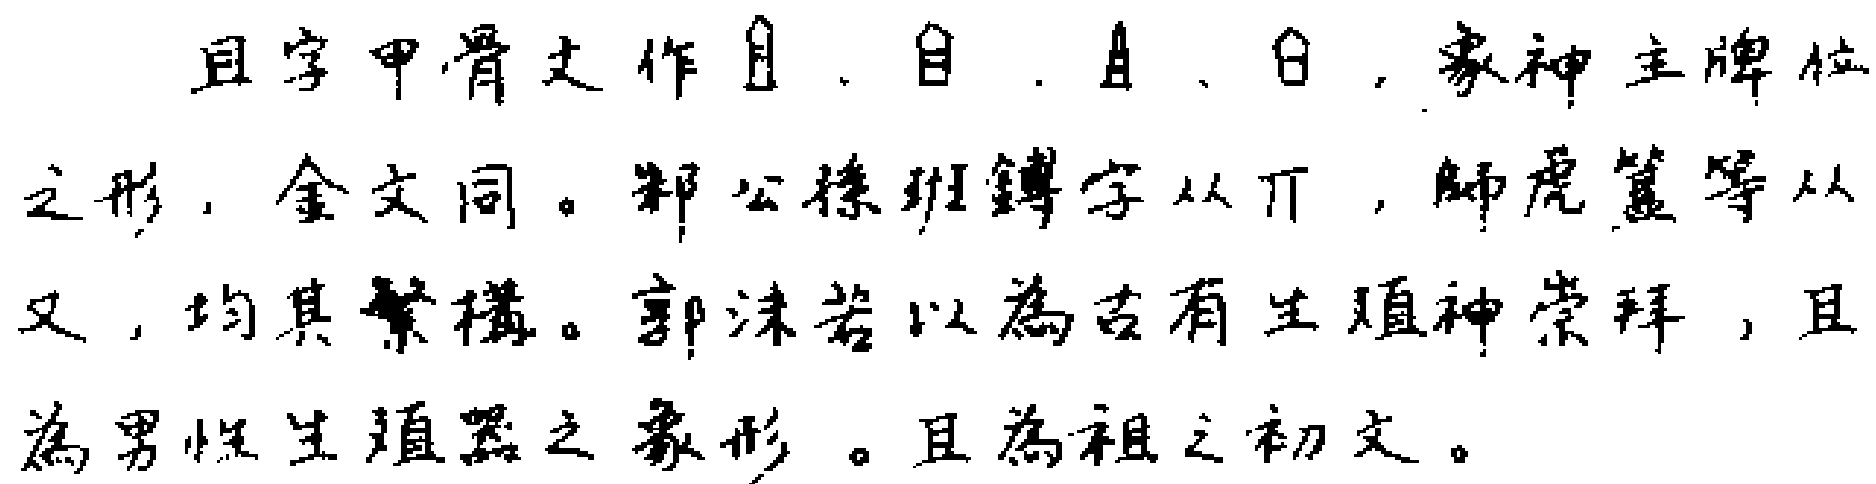 且字甲骨文作、、、、象神主牌位
之形,金文同。邾公孫班鎛字从丌,師虎簋等从
又,均其繁構。郭沫若以為古有生殖神崇拜,且
為男性生殖器之象形。且為祖之初文。